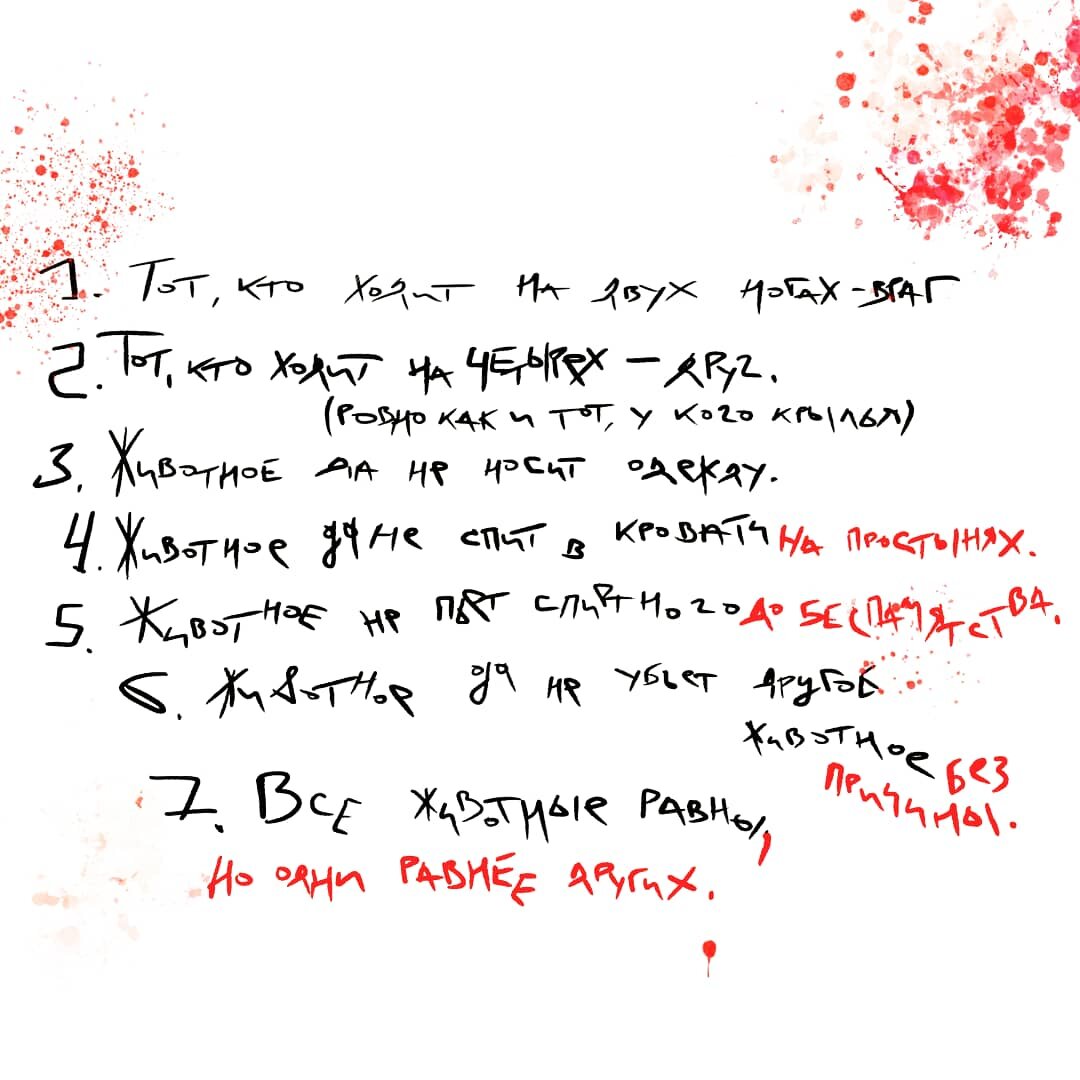 1. Тот, кто ходит на двух ногах - враг
2. Тот, кто ходит на четырех - друг.
(ровно как и тот, у кого крылья)
3. Животное да не носит одежду.
4. Животное да не спит в кровати на простынях.
5. Животное не пьет спиртного до беспамятства.
6. Животное да не убьет другое
животное без
причины.
7. Все животные равны,
но одни равнее других.